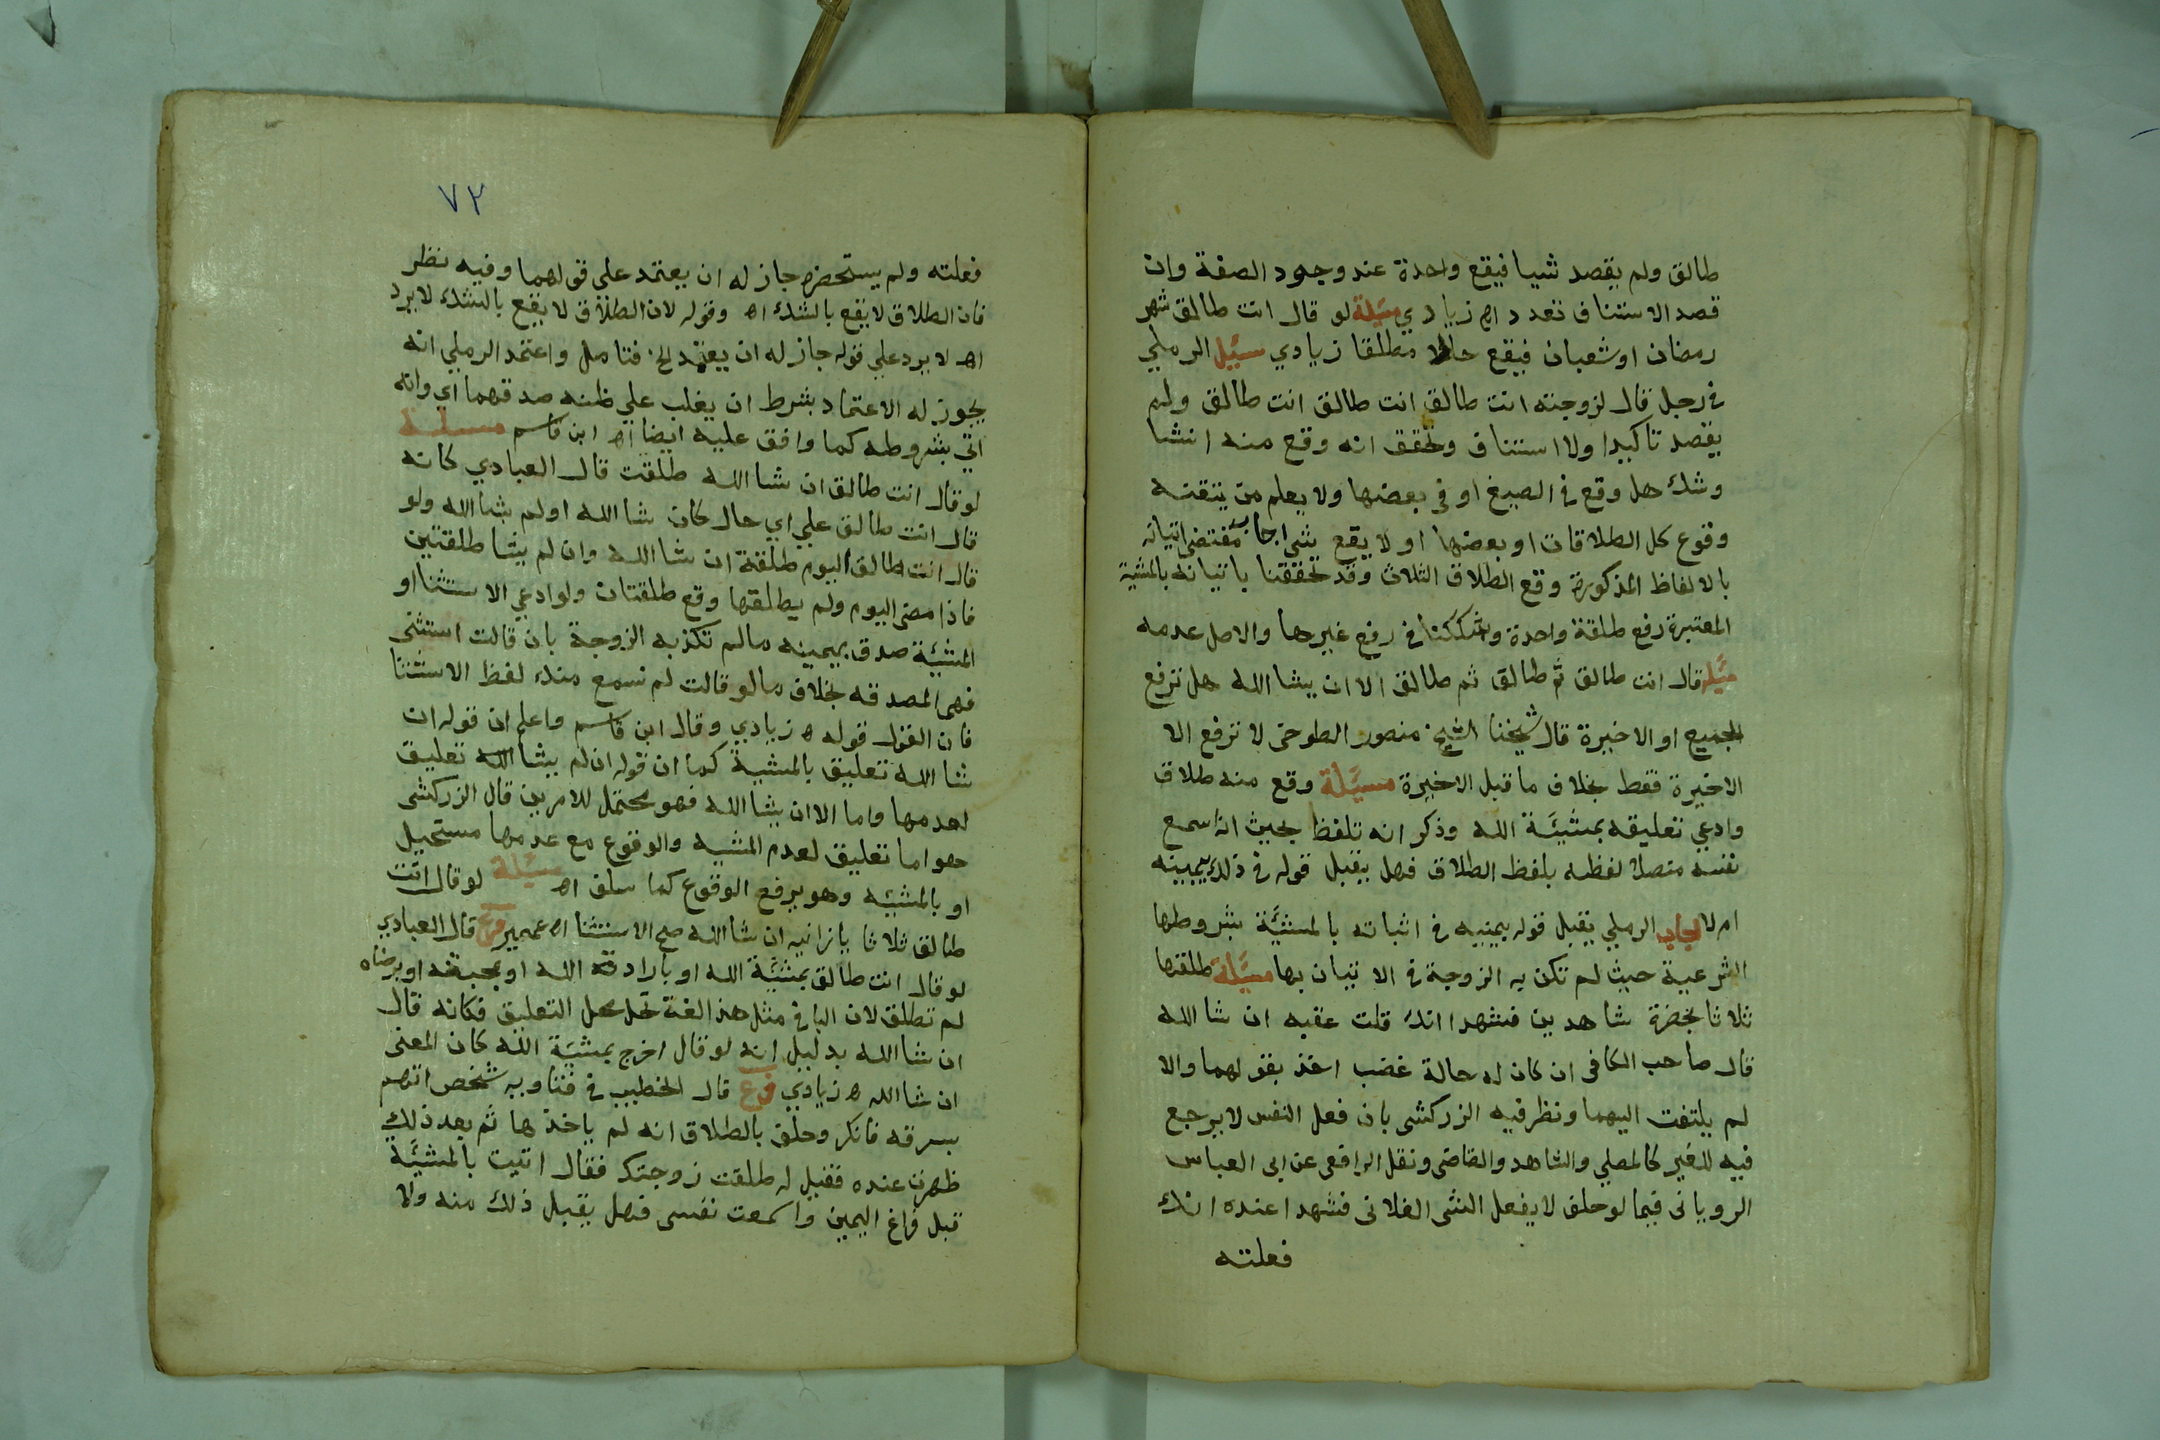 طالق ولم يقصد شيا فيقع واحدة عند وجود الصفة وان
قصد الاستئناف تعدد اه زيادي مسئلة لو قال انت طالق شهر
رمضان او شعبان فيقع حالا مطلقا زيادي سئيل الرملي
في رجل قال لزوجته انت طالق انت طالق انت طالق ولم
يقصد تاكيدا ولا استئناف وتحقق انه وقع منه انشا
وشك هل وقع في الصيغ او في بعضها ولا يعلم من يتقنه
وقوع كل الطلاقات او بعضها او لا يقع شي اجاب مقتضى اتيانه
بالالفاظ المذكورة وقع الطلاق الثلاث وقد تحققنا باتيانه بالمشية
المعتبرة رفع طلقة واحدة وشككنا في رفع غيرها والاصل عدمه
مسئلة قال انت طالق ثم طالق ثم طالق الا ان يشا الله هل ترفع
الجميع او الاخيرة قال شيخنا الشيخ منصور الطوخى لا ترفع الا
الاخيرة فقط بخلاف ما قبل الاخيرة مسئلة وقع منه طلاق
وادعي تعليقه بمشيئة الله وذكر انه تلفظ بحيث انه اسمع
نفسه متصلا لفظه بلفظ الطلاق فهل يقبل قوله في ذلك بيمينه
ام لا اجاب الرملي يقبل قوله بيمينه في اثباته بالمشيئة بشروطها
الشرعية حيث لم تكن به الزوجة في الاتيان بها مسئلة طلقتها
ثلاثا بحضرة شاهدين فشهدا انك قلت عقبه ان شا الله
قال صاحب الكافي ان كان له حالة غضب اخذ بقولهما والا
لم يلتفت اليهما ونظر فيه الزركشى بان فعل النفس لا يرجع
فيه للغير كالمصلي والشاهد والقاضى ونقل الرافعى عن ابى العباس
الرويانى فيما لو حلف لا يفعل الشى الفلانى فشهدا عنده انك
فعلته
٧٢
فعلته ولم يستحضره جاز له ان يعتمد على قولهما وفيه نظر
فان الطلاق لا يقع بالشك اه وقوله لان الطلاق لا يقع بالشك لا يرد
اه لا يرد علي قوله جاز له ان يعتمد الخ فتامل واعتمد الرملي انه
يجوز له الاعتماد بشرط ان يغلب علي ظنه صدقهما اي وانه
اتي بشروطه كما وافق عليه ايضا اه ابن قاسم مسئلة
لو قال انت طالق ان شا الله طلقت قال العبادي كانه
قال انت طالق علي اي حال كان شا الله او لم يشا الله ولو
قال انت طالق اليوم طلقة ان شا الله وان لم يشا طلقتين
فاذا مضى اليوم ولم يطلقها وقع طلقتان ولو ادعي الاستثنا او
المشيئة صدق بيمينه مالم تكذبه الزوجة بان قالت استثنى
فهى المصدقه بخلاف مالو قالت لم نسمع منك لفظ الاستثنا
فان القول قوله ه زيادي وقال ابن قاسم واعلم ان قوله ان
شا الله تعليق بالمشية كما ان قوله ان لم يشا الله تعليق
لعدمها واما الا ان يشا الله فهو محتمل للامرين قال الزركشى
هو اما تعليق لعدم المشيه والوقوع مع عدمها مستحيل
او بالمشيئه وهو يرفع الوقوع كما سلف اه مسئلة لو قال انت
طالق ثلاثا يا زانيه ان شا الله صح الاستثنا اه عميره فرع قال العبادي
لو قال انت طالق بمشيئة الله او بارادة الله او بمحبته او برضاه
لم تطلق لان البا في مثل هذ الغة تحل محل التعليق فكانه قال
ان شا الله بدليل انه لو قال اخرج بمشيئة الله كان المعنى
ان شا الله ه زيادي فرع قال الخطيب في فتاويه شخص اتهم
بسرقه فانكر وحلف بالطلاق انه لم ياخذها ثم بعد ذلك
ظهرت عنده فقيل له طلقت زوجتك فقال اتيت بالمشيئة
قبل فراغ اليمين واسمعت نفسى فهل يقبل ذلك منه ولا